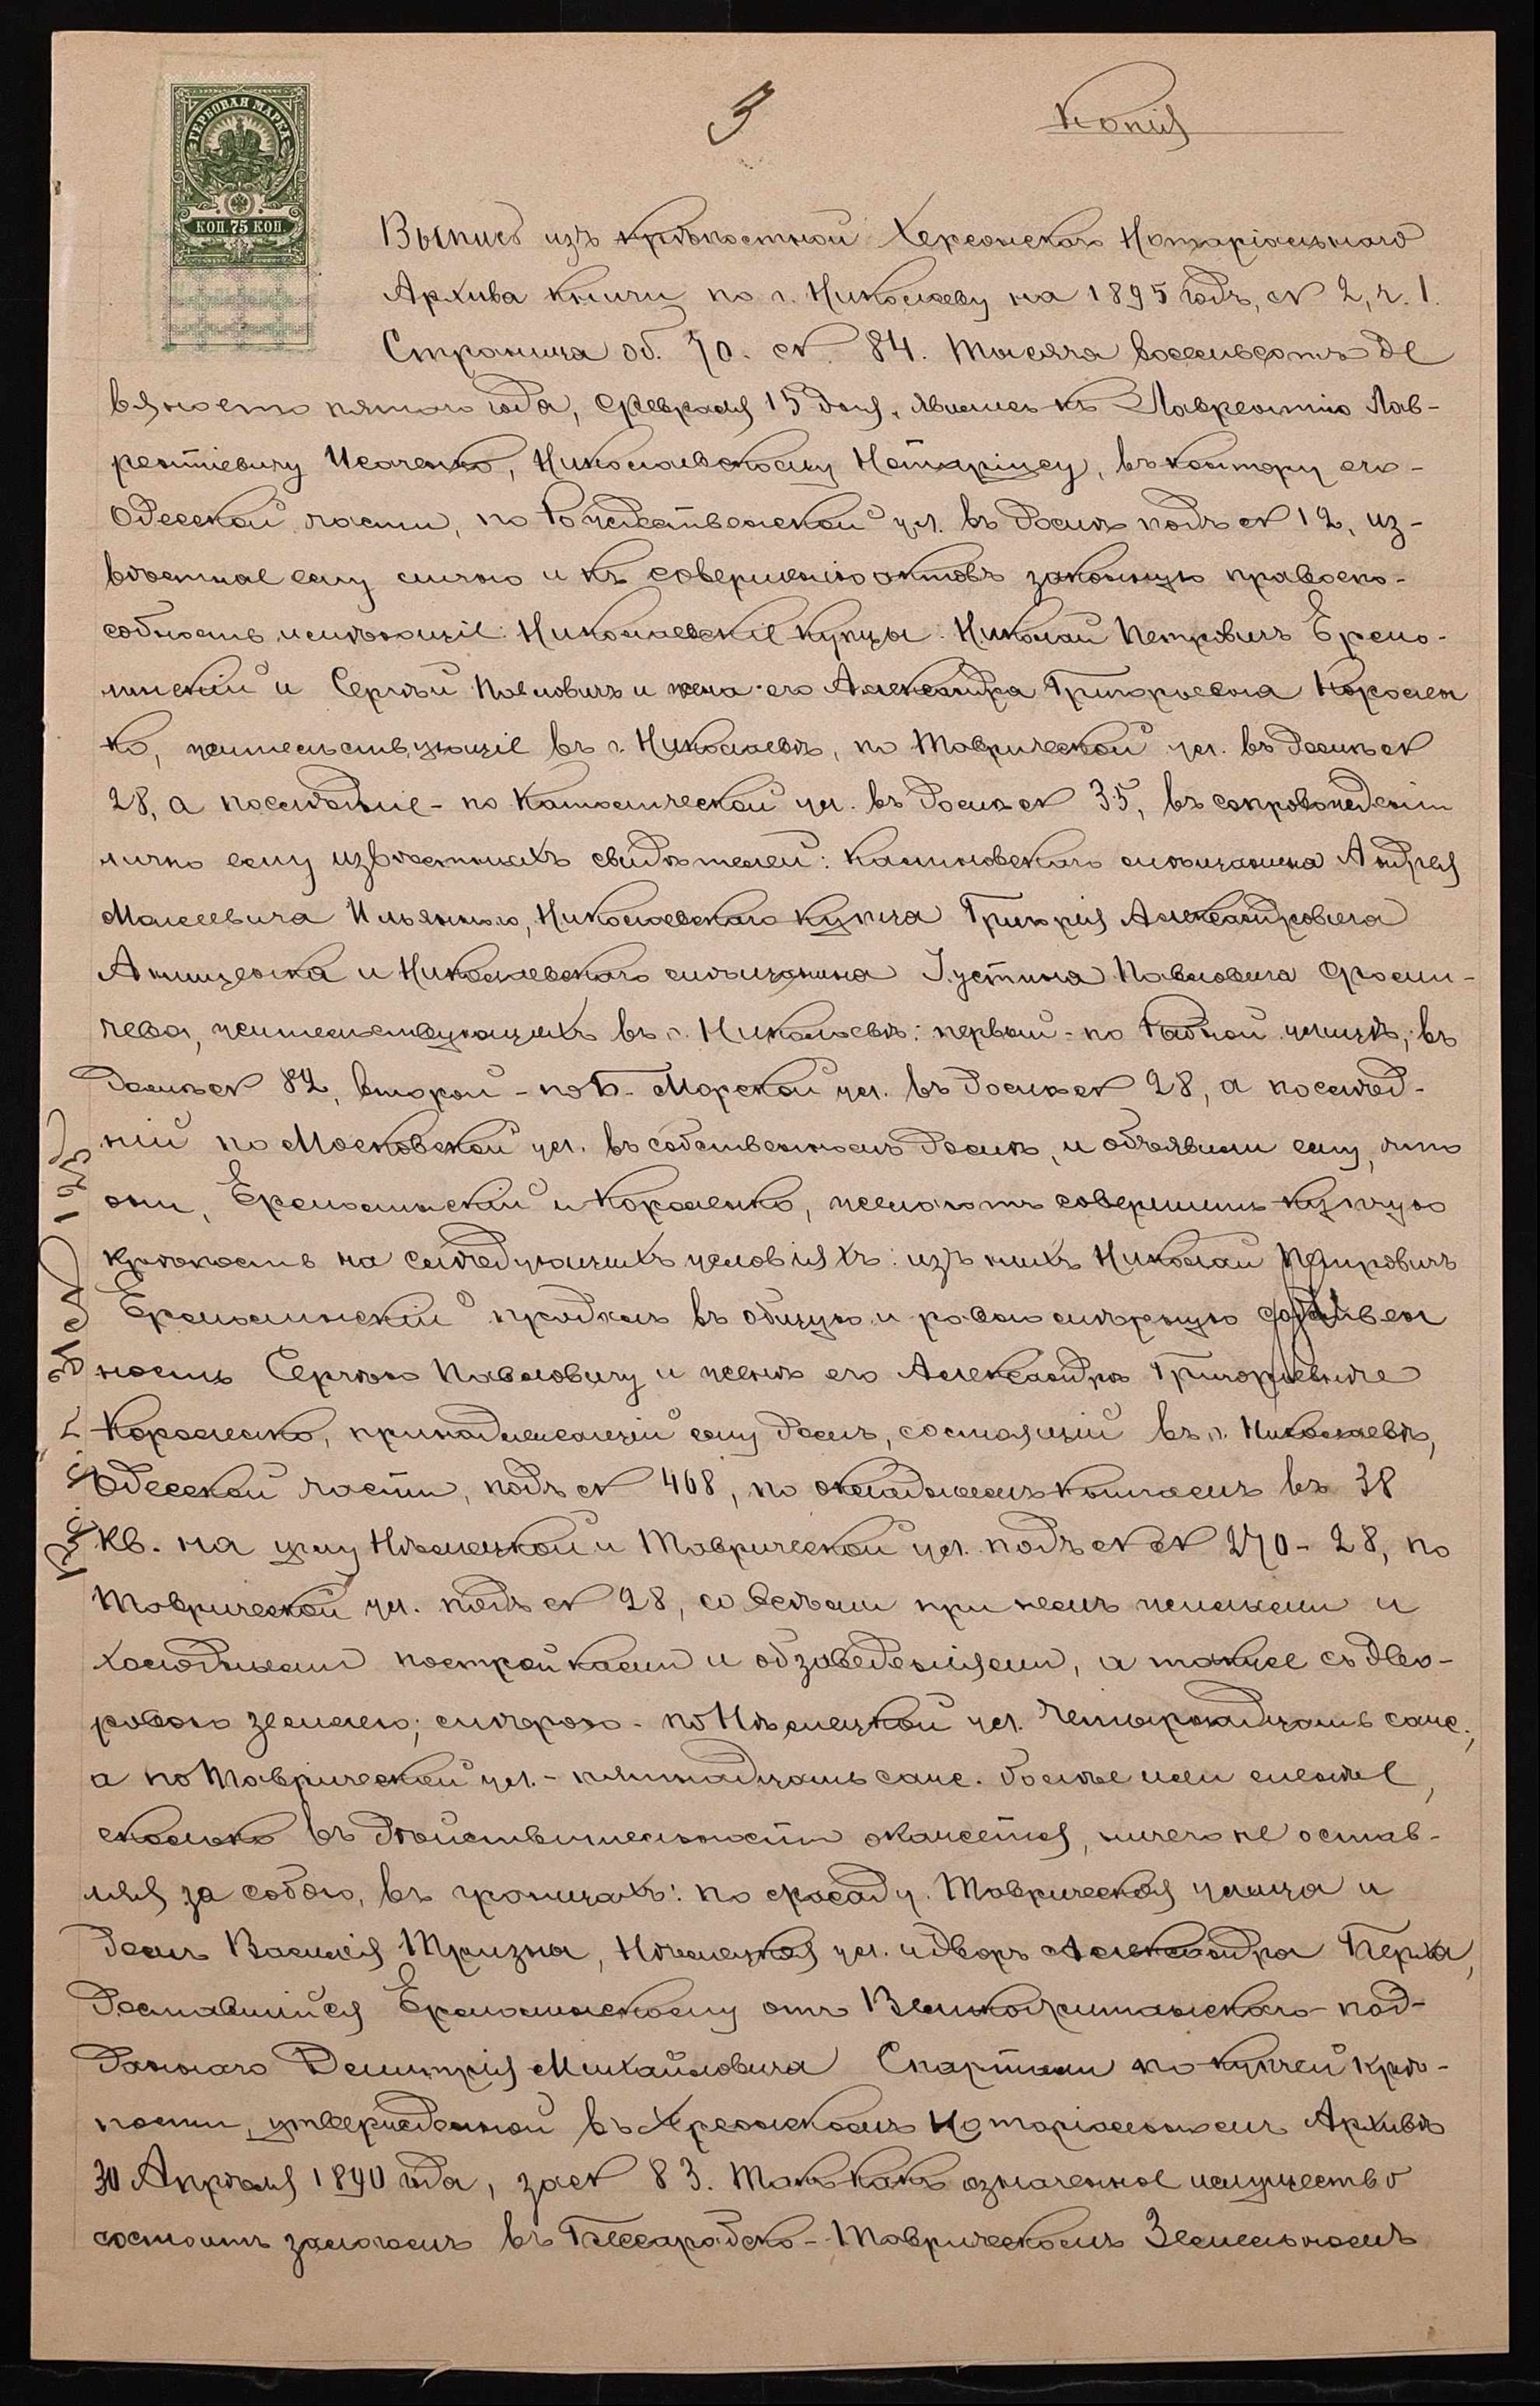 3
Копія
ГЕРБОВАЯ МАРКА
КОП. 75 КОП.
Выпись изъ крѣпостной Херсонскаго Нотаріальнаго
Архива книги по г. Николаеву на 1895 годъ, № 2, ч. 1.
Страница об. 70. № 84. Тысяча восемьсотъ де
вяносто пятаго года, Февраля 15 дня, явились къ Лаврентію Лав-
рентіевичу Исаченко, Николаевскому Нотаріусу, въ контору его-
Одесской части, по Рождественской ул. въ домѣ подъ № 12, из-
вѣстные ему лично и къ совершенію актовъ законную правоспо-
собность имѣющіе: Николаевскіе купцы: Николай Петровичъ Ермо-
линскій и Сергѣй Павловичъ и жена его Александра Григорьевна Королен
ко, жительствующіе въ г. Николаевѣ, по Таврической ул. въ домѣ №
28, а послѣдніе - по Католической ул. въ домѣ № 35, въ сопровожденіи
лично ему извѣстныхъ свидѣтелей: Калиновскаго мѣщанина Андрея
Моисеевича Ильяного, Николаевскаго купца Григорія Александровича
Анищенка и Николаевскаго мѣщанина Іустина Павловича Фоми-
чева, жительствующихъ въ г. Николаевѣ: первый - по улицѣ, въ
домѣ № 82, второй - по Б. Морской ул. въ домѣ № 28, а послѣд-
ній по Московской ул. въ собственномъ домѣ, и объявили ему, что
они, Ермолинскій и Короленко, желаютъ совершить купчую
крѣпость на слѣдующихъ условіяхъ: изъ нихъ Николай Петровичъ
Ермолинскій продалъ въ общую и равномѣрную собствен
ность Сергѣю Павловичу и женѣ его Александрѣ Григорьевнѣ
Короленко, принадлежащій ему домъ, состоящій въ г. Николаевѣ,
Одесской части, подъ № 468, по окладнымъ книгамъ въ 38
кв. на углу Нѣмецкой и Таврической ул. подъ №№ 270-28, по
Таврической ул. подъ № 28, со всѣми при немъ жилыми и
холодными постройками и обзаведеніями, а также съ дво-
ровою землею; мѣрою - по Нѣмецкой ул. четырнадцать саж.,
а по Таврической ул. - пятнадцать саж. болѣе или менѣе,
сколько въ дѣйствительности окажется, ничего не остав-
ляя за собою, въ границахъ: по фасаду Таврическая улица и
домъ Василія Тризны, Нѣмецкая ул. и дворъ Александра
доставшійся Ермолинскому отъ Великобританскаго под-
даннаго Димитрія Михайловича Спартали по купчей крѣ-
пости, утвержденной въ Херсонскомъ Нотаріальномъ Архивѣ
30 Апрѣля 1890 года, за № 83. Такъ какъ означенное имущество
состоитъ залогомъ въ Бессарабско-Таврическомъ Земельномъ